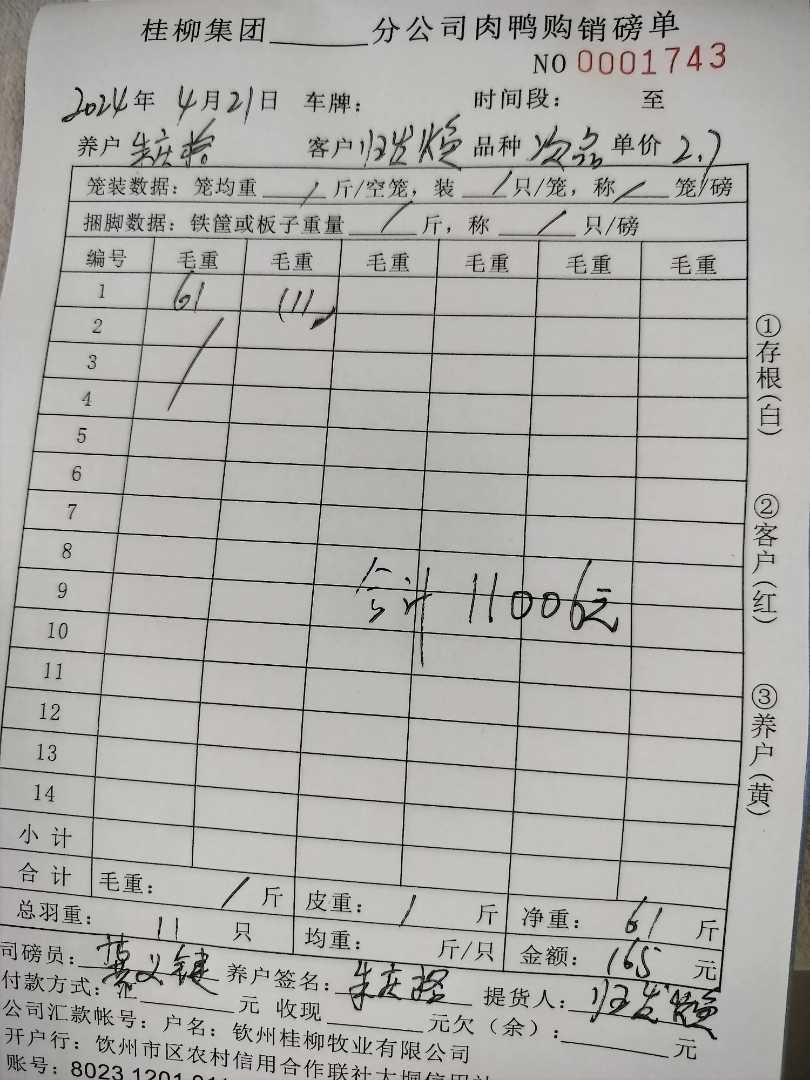 桂柳集团______分公司肉鸭购销磅单
NO 0001743
2024年 4月21日 车牌： 时间段： 至
养户 朱庆 客户 归发焕 品种 次品 单价 2.7
笼装数据：笼均重 / 斤/空笼，装 / 只/笼，称 / 笼/磅
捆脚数据：铁筐或板子重量 / 斤，称 / 只/磅
编号 毛重 毛重 毛重 毛重 毛重 毛重
1 61 (11)
2
3
4
5
6
7
8
9
合计 11006元
10
11
12
13
14
小计
合计 毛重： / 斤 皮重： / 斤 净重： 61 斤
总羽重： 11 只 均重： 斤/只 金额： 165 元
司磅员： 义键 养户签名： 朱庆 提货人： 归发焕
付款方式：汇______元 收现______元欠（余）：______元
公司汇款帐号：户名：钦州桂柳牧业有限公司
开户行：钦州市区农村信用合作联社大垌信用社
账号：8023 1201
①存根(白)
②客户(红)
③养户(黄)